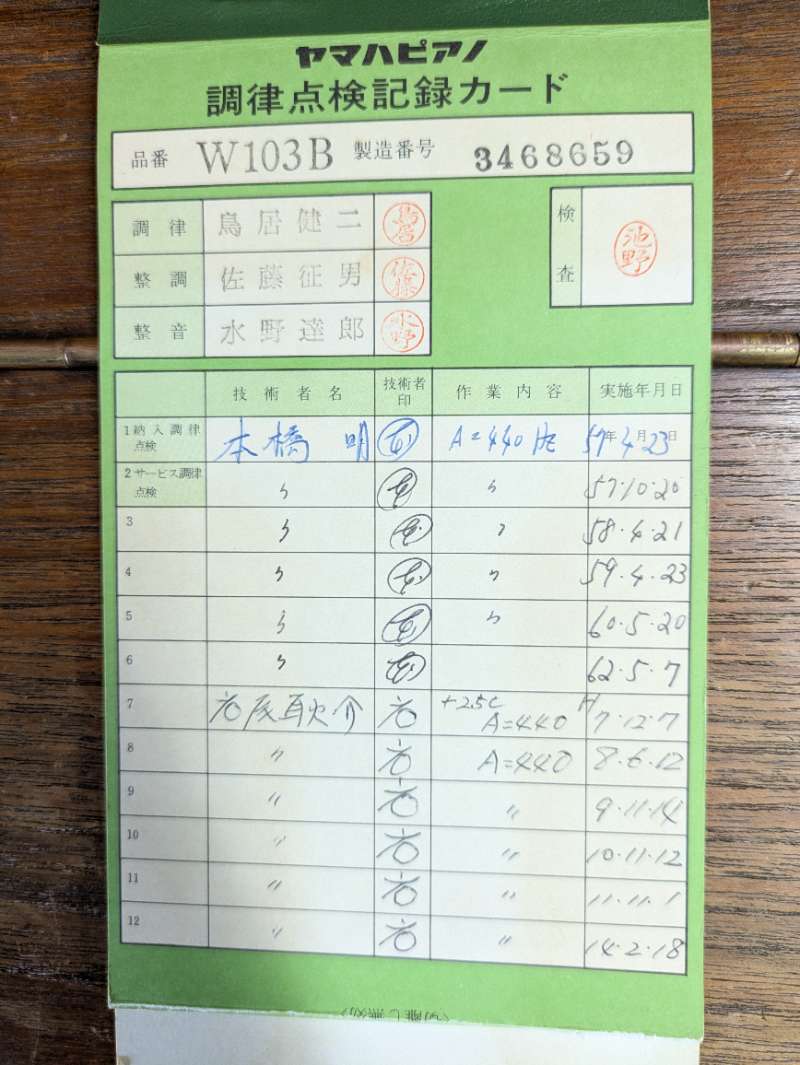 ヤマハピアノ
調律点検記録カード
品番 W103B 製造番号 3468659
調律 鳥居健二 鳥居
整調 佐藤征男 佐藤
整音 水野達郎 水野
検査 池野
技術者名 技術者印 作業内容 実施年月日
1 納入調律点検 本橋 明 本 A=440Hz 57年4月23日
2 サービス調律点検 〃 本 〃 57.10.20
3 〃 本 〃 58.4.21
4 〃 本 〃 59.4.23
5 〃 本 〃 60.5.20
6 〃 本 62.5.7
7 +2.5C A=440 H7.12.7
8 〃 A=440 8.6.12
9 〃 〃 9.11.14
10 〃 〃 10.11.12
11 〃 〃 11.11.1
12 〃 〃 14.2.18